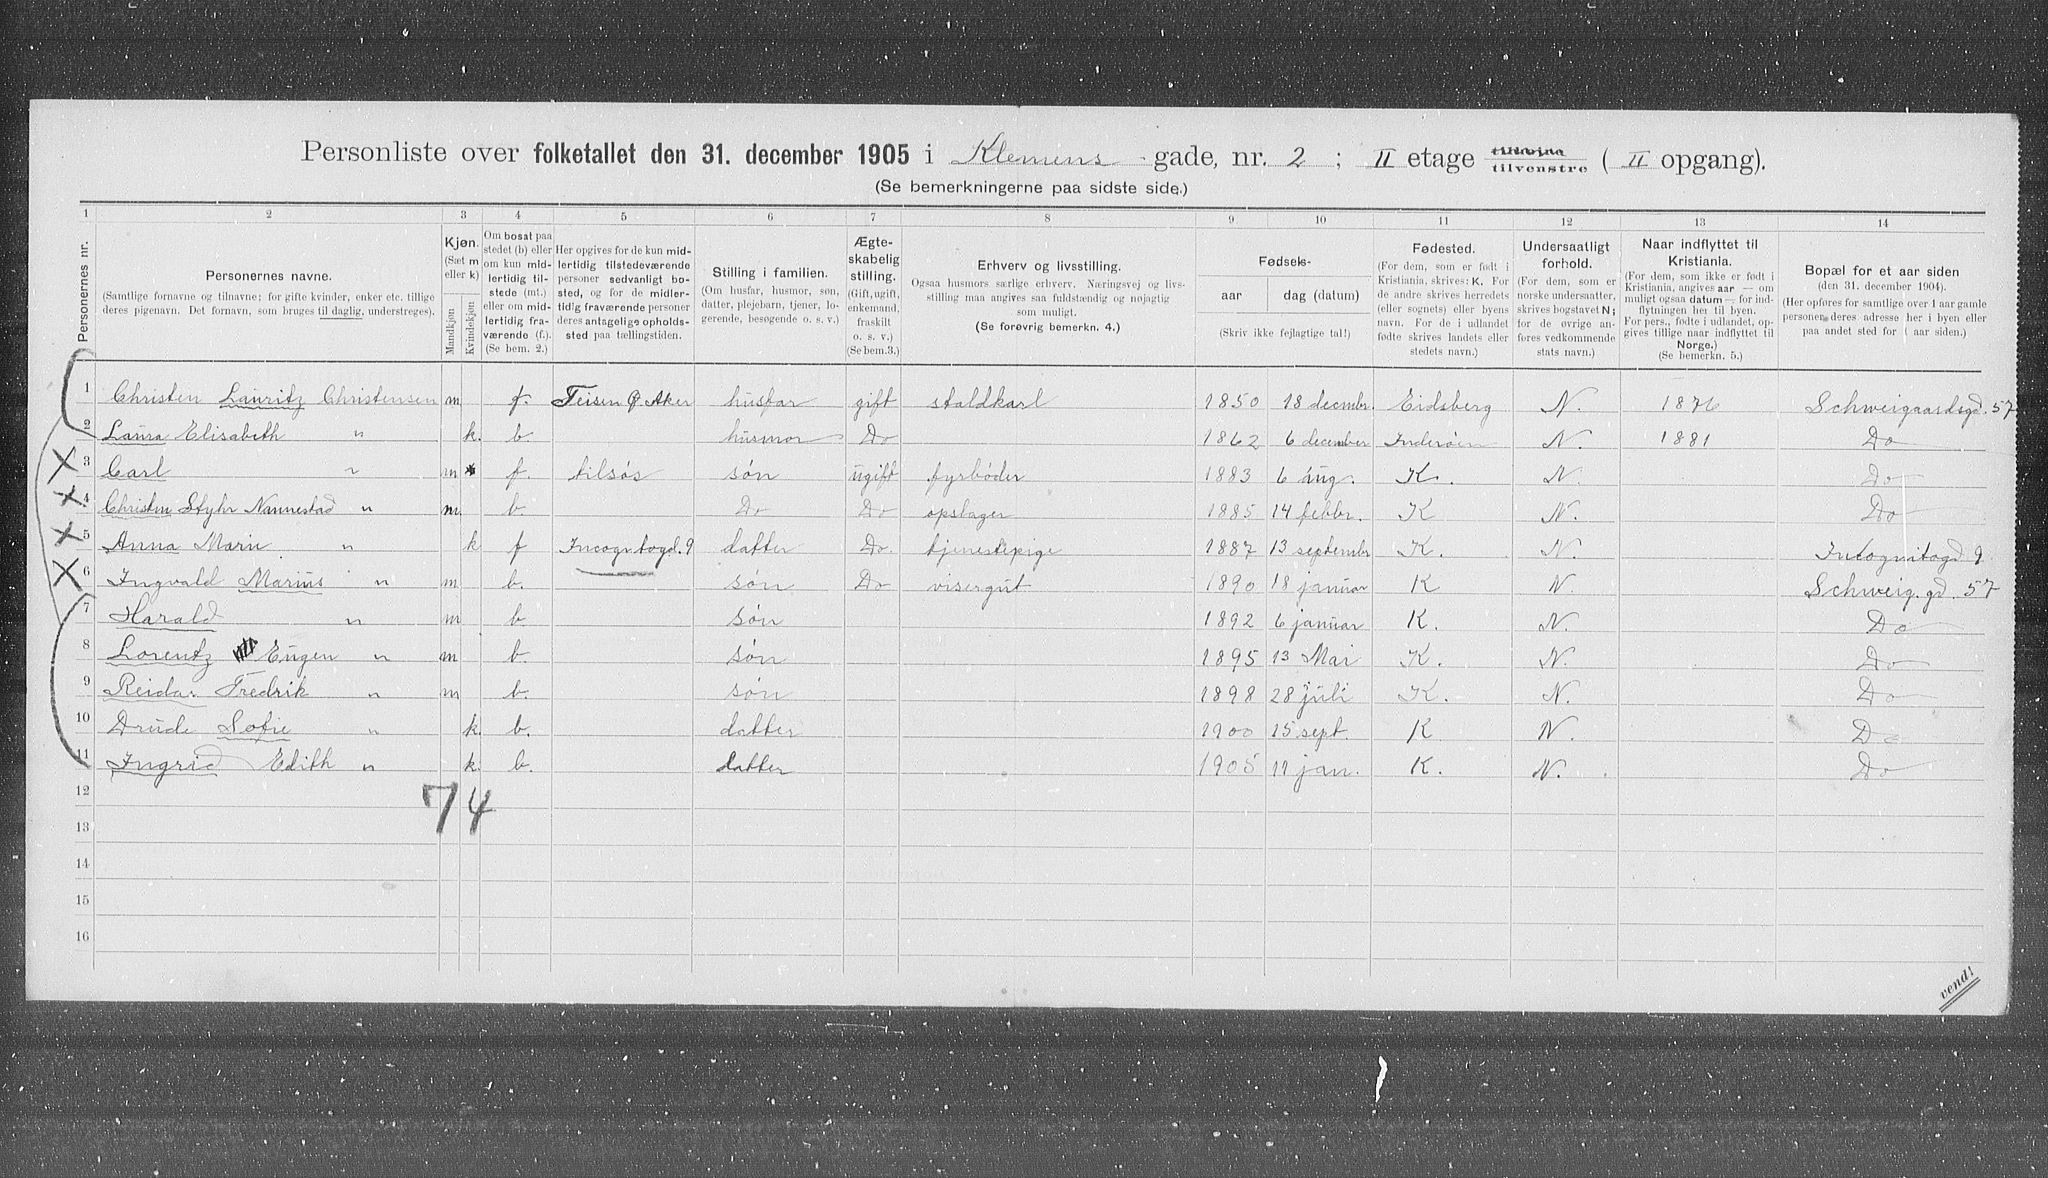 Personliste over folketallet den 31. december 1905 i Klemens gade, nr. 2 ; II etage tilhøire tilvenstre ( II opgang).
(Se bemerkningerne paa sidste side.)
1 2 3 4 5 6 7 8 9 10 11 12 13 14
Personernes nr.
Personernes navne.
(Samtlige fornavne og tilnavne; for gifte kvinder, enker etc. tillige
deres pigenavn. Det fornavn, som bruges til daglig, understreges).
Kjøn.
(Sæt m
eller k)
Mandkjøn
Kvindekjøn
Om bosat paa
stedet (b) eller
om kun mid-
lertidig til-
stede (mt.)
eller om mid-
lertidig fra-
værende (f.).
(Se bem. 2.)
Her opgives for de kun mid-
lertidig tilstedeværende
personer sedvanlig bo-
sted, og for de midler-
tidig fraværende personer
deres antagelige opholds-
sted paa tællingstiden.
Stilling i familien.
(Om husfar, husmor, søn,
datter, plejebarn, tjener, lo-
gerende, besøgende o. s. v.)
Ægte-
skabelig
stilling.
(Gift, ugift,
enkemand,
fraskilt
o. s. v.)
(Se bem.3.)
Erhverv og livsstilling.
Ogsaa husmors særlige erhverv. Næringsvej og livs-
stilling maa angives saa fuldstændig og nøjagtig
som muligt.
(Se forøvrig bemerkn. 4.)
Fødsels-
aar
dag (datum)
(Skriv ikke fejlagtige tal!)
Fødested.
(For dem, som er født i
Kristiania, skrives: K. For
de andre skrives herredets
(eller sognets) eller byens
navn. For de i udlandet
fødte skrives landets eller
stedets navn.)
Undersaatligt
forhold.
(For dem, som er
norske undersaatter,
skrives bogstavet N;
for de øvrige an-
føres vedkommende
stats navn.)
Naar indflyttet til
Kristiania.
(For dem, som ikke er født i
Kristiania, angives aar — om
muligt ogsaa datum — for ind-
flytningen her til byen.
For pers., fødte i udlandet, op-
gives tillige naar indflyttet til
Norge.)
(Se bemerkn. 5.)
Bopæl for et aar siden
(den 31. december 1904).
(Her opføres for samtlige over 1 aar gamle
personer deres adresse her i byen eller
paa andet sted for 1 aar siden.)
1 Christen Lauritz Christensen m f. Teisen Ø. Aker husfar gift staldkarl 1850 18 decembr. Eidsberg N. 1876 Schweigaardsgd. 57
2 Laura Elisabeth " k. b husmor Do 1862 6 december Inderøen N 1881 Do
X 3 Carl " m f. tilsøs søn ugift fyrbøder 1883 6 aug. K. N. Do
X 4 Christen Styhr Nannestad " m. b Do Do opsager 1885 14 febbr. K N. Do
X 5 Anna Marie " k f Incognitogd. 9 datter Do. tjenestepige 1887 13 septembr K. N. Intognitogd 9
X 6 Ingvald Marius " m b. søn Do visergut 1890 18 januar K N. Schweig. gd. 57
7 Harald " m b søn 1892 6 januar K. N. Do
8 Lorentz Eugen " m b. søn 1895 13 Mai K. N. Do
9 Reidar Fredrik " m b. søn 1898 28 juli K. N. Do
10 Drude Sofie " k. b. datter 1900 15 sept. K N. Do
11 Ingrid Edith " k. b. datter 1905 11 jan. K. N. Do
12
7 4
13
14
15
16
vend!